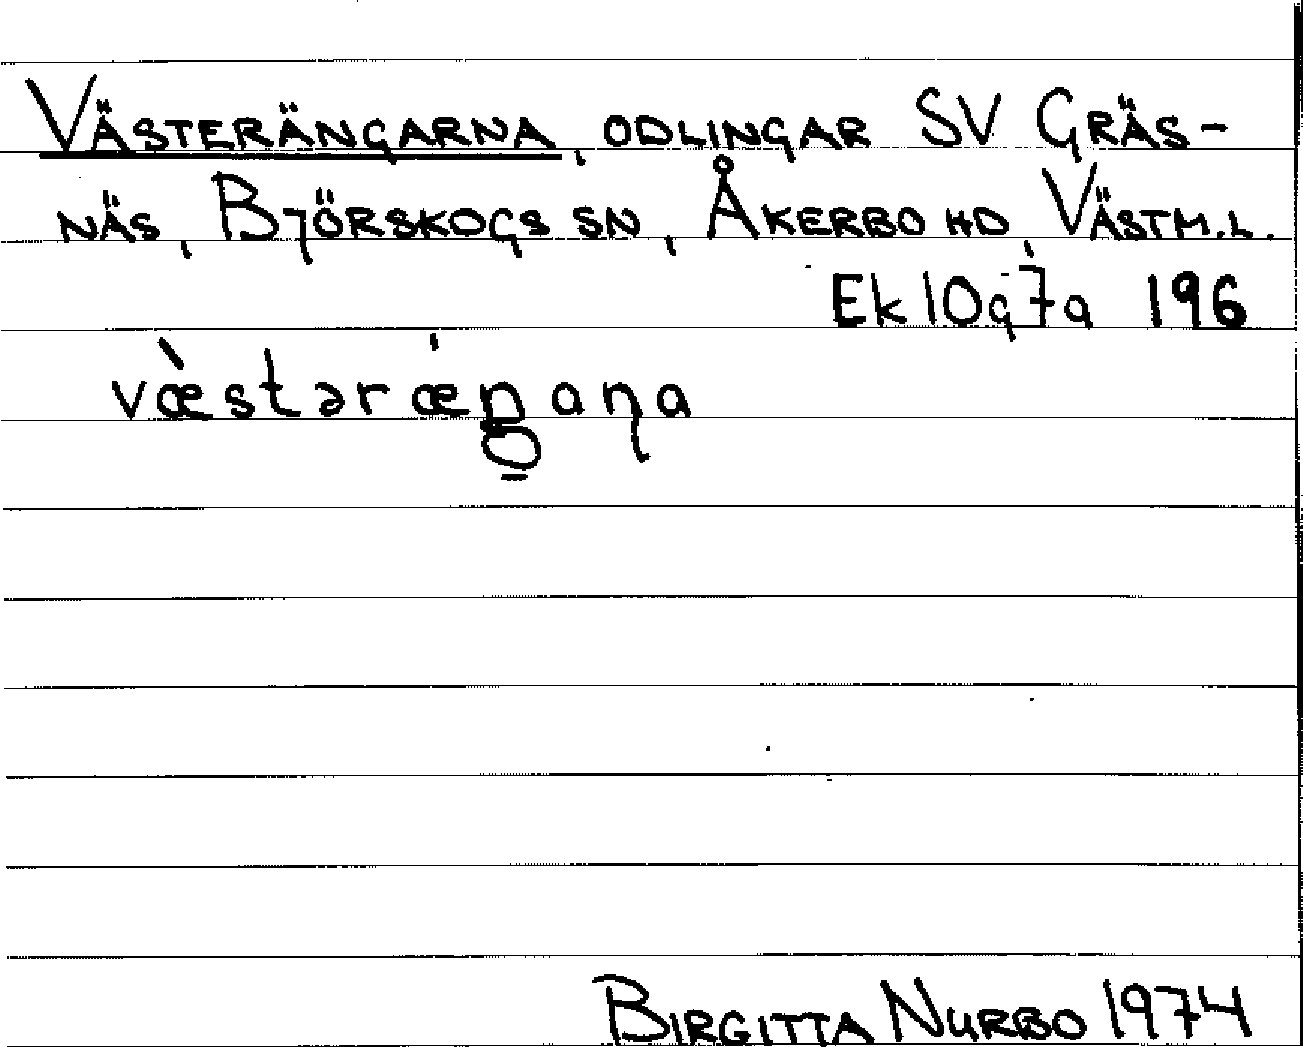 VÄSTERÄNGARNA, ODLINGAR SV GRÄS-
NÄS, BJÖRSKOGS SN, ÅKERBO HD, VÄSTM.L.
Ek 10g7a 196
væ̀stəræŋana
BIRGITTA NURBO 1974